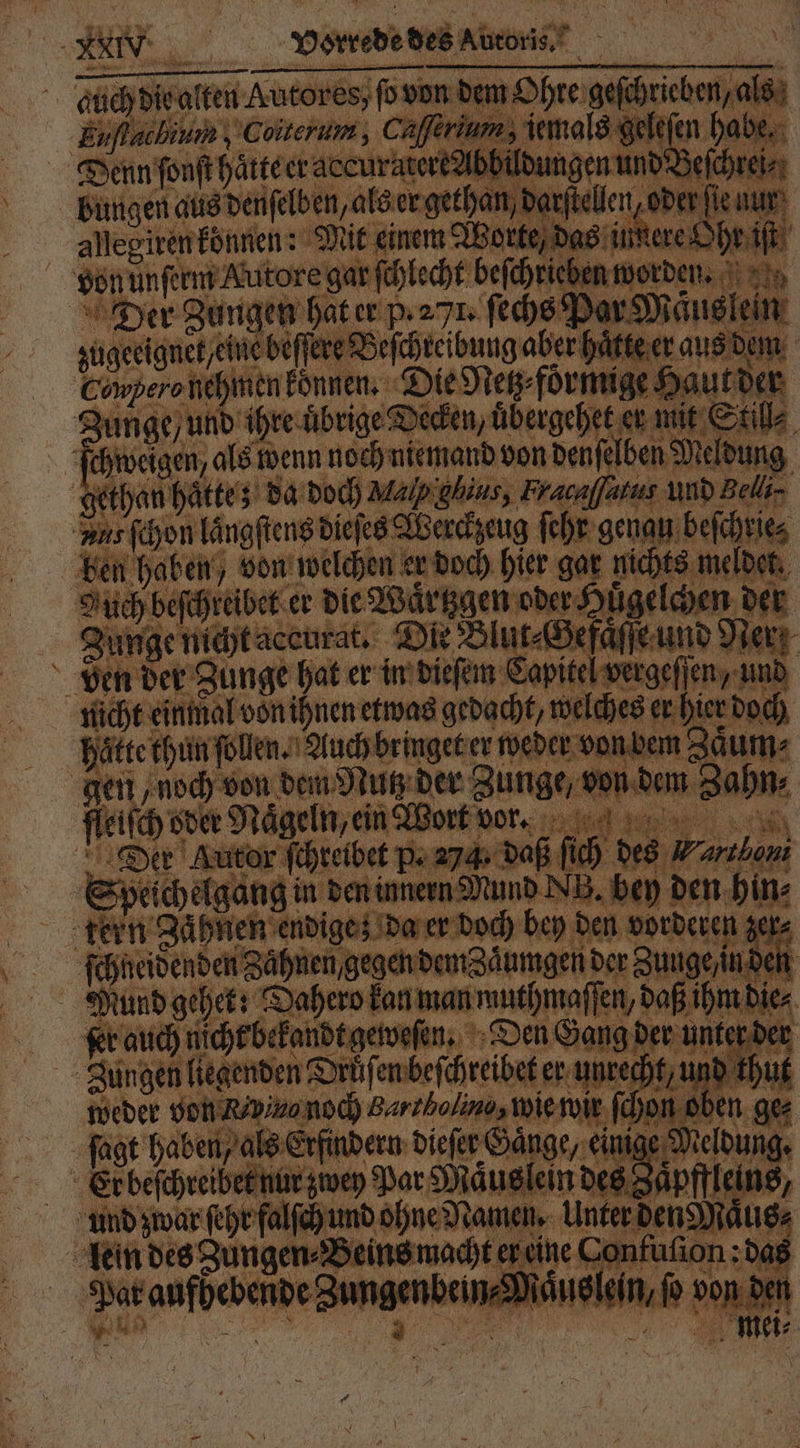 XXIV Vorrede des Autoris.
auch die alten Autores, ſo von dem Ohre geſchrieben, als
Euſtachium, Coiterum, Caſſerium, iemals geleſen habe.
Denn ſonſt haͤtte er accuratere Abbildungen und Beſchrei⸗
bungen aus denſelben, als er gethan, darſtellen, oder ſie nur
allegiren koͤnnen: Mit einem Worte, das innere Ohr iſt
von unſerm Autore gar ſchlecht beſchrieben worden.
Der Zungen hat er p. 271. ſechs Par Maͤuslein
zugeeignet, eine beſſere Beſchreibung aber haͤtte er aus dem
Cowpero nehmen koͤnnen. Die Netz⸗foͤrmige Haut der
Zunge, und ihre uͤbrige Decken, uͤbergehet er mit Still⸗
ſchweigen, als wenn noch niemand von denſelben Meldung
gethan haͤtte; da doch Malpighius, Fracaſſatus und Belli-
nus ſchon laͤngſtens dieſes Werckzeug ſehr genau beſchrie⸗
ben haben, von welchen er doch hier gar nichts meldet.
Auch beſchreibet er die Waͤrtzgen oder Huͤgelchen der
Zunge nicht accurat. Die Blut⸗Gefaͤſſe und Ner⸗
ven der Zunge hat er in dieſem Capitel vergeſſen, und
nicht einmal von ihnen etwas gedacht, welches er hier doch
haͤtte thun ſollen. Auch bringet er weder von dem Zaͤum⸗
gen, noch von dem Nutz der Zunge, von dem Zahn⸗
fleiſch oder Naͤgeln, ein Wort vor.
Der Autor ſchreibet p. 274. daß ſich des Warthoni
Speichelgang in den innern Mund NB. bey den hin⸗
tern Zaͤhnen endige; da er doch bey den vorderen zer⸗
ſchneidenden Zaͤhnen, gegen dem Zaͤumgen der Zunge, in den
Mund gehet: Dahero kan man muthmaſſen, daß ihm die⸗
ſer auch nicht bekandt geweſen. Den Gang der unter der
Zungen liegenden Druͤſen beſchreibet er unrecht, und thut
weder von Rivino noch Bartholino, wie wir ſchon oben ge⸗
ſagt haben, als Erfindern dieſer Gaͤnge, einige Meldung.
Er beſchreibet nur zwey Par Maͤuslein des Zaͤpffleins,
und zwar ſehr falſch und ohne Namen. Unter den Maͤus⸗
lein des Zungen⸗Beins macht er eine Confuſion: das
Par aufhebende Zungenbein⸗Maͤuslein, ſo von den
mei⸗